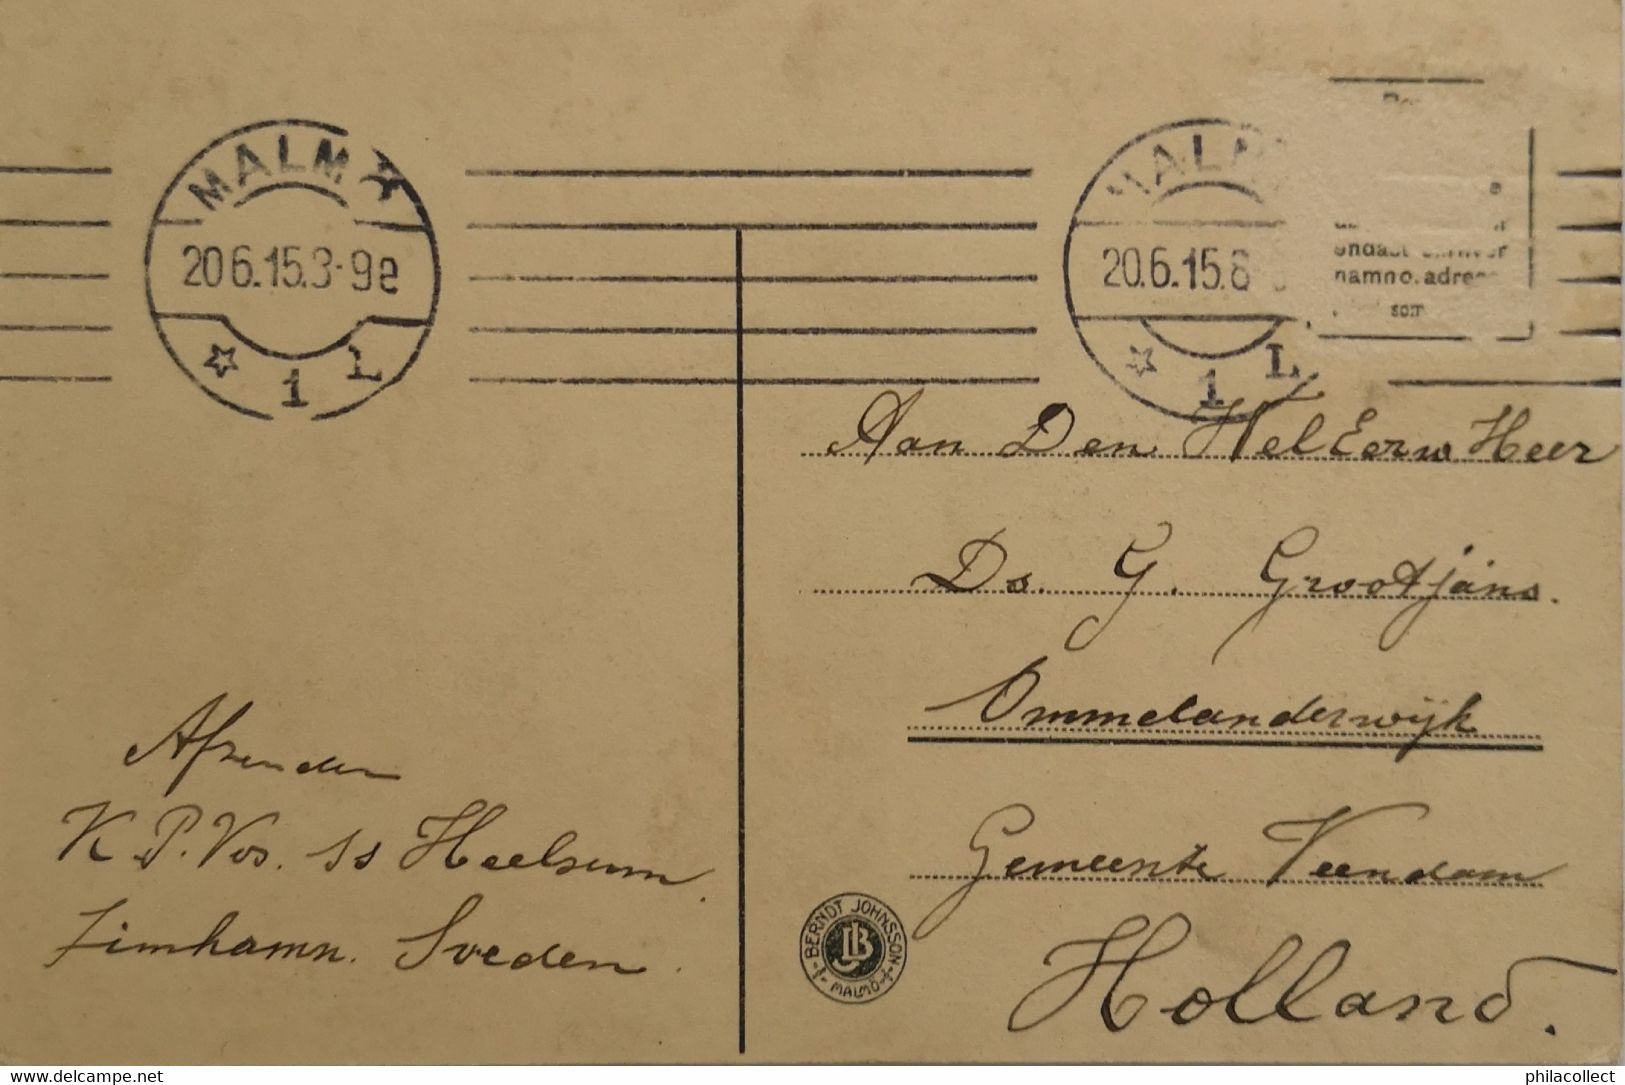 MALMÖ
20 6.15.3-9e
1 L
MALM
20.6.15.8
1 L
namno.adres
som
Aan Den WelEerw Heer
Ds. G. Grootjans.
Ommelanderwijk
Gemeente Veendam
Holland.
Afzender
K P. Vos. ss Heelsum.
Limhamn. Sveden.
BERNDT JOHNSSON
MALMÖ
JB
www.delcampe.net
philacollect